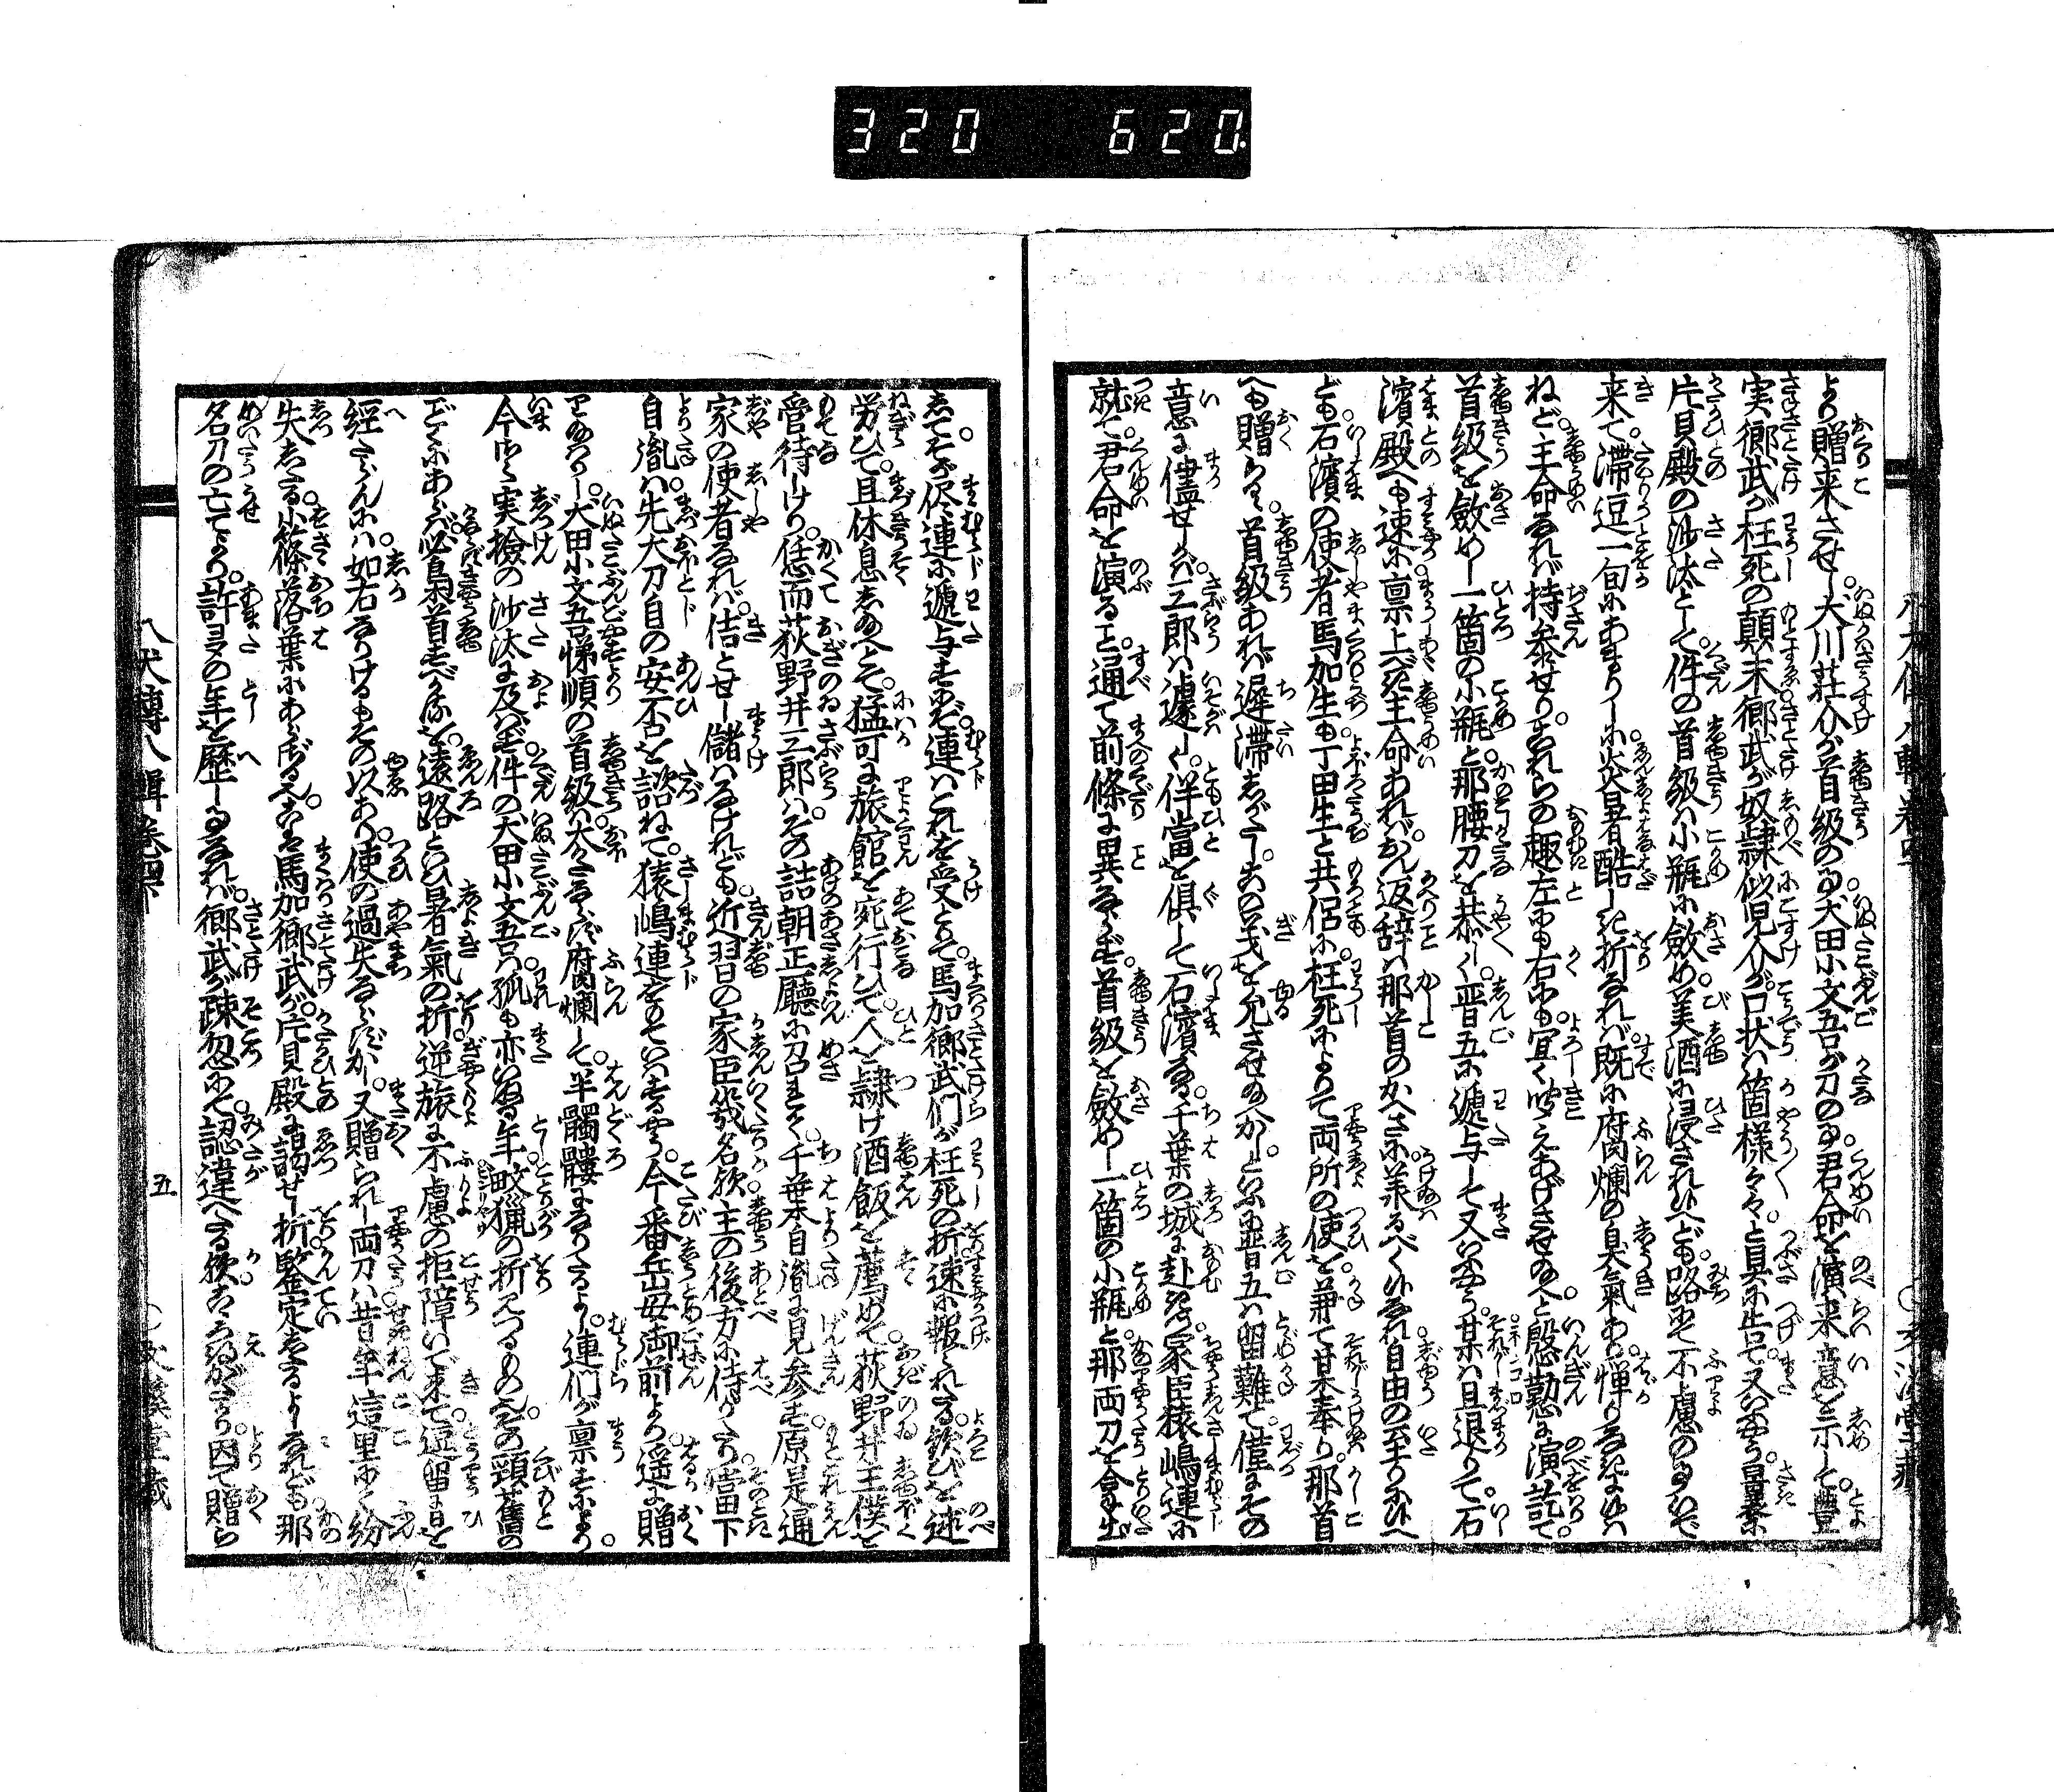 320 620
より贈来させし犬川荘介が首級の事犬田小文吾が刀の事君命を演来意を示して豊
実郷武が枉死の顛末郷武が奴隷似児介が口状は箇様々々と具に告て又いふやう曩
片貝殿の沙汰として件の首級は小瓶に斂め美酒に浸されしへども路にて不慮の事いで
来て滞逗一旬にあまりしに炎暑酷しき折なれば既に腐爛の臭氣あり憚りなきにゆは
ねど主命なれば持参せりこれらの趣左にも右にも宜く聞えあげさせ給へと慇懃に演訖て
首級を斂めし一箇の小瓶と那腰刀を恭しく晋五に逓与して又いふやう某は且退りて石
濱殿へも速に禀上べき主命あれば おん返辞は那首のかへさに羨るべくいなれ自由の至りにいへ
ども石濱の使者馬加生も丁田生と共侶に枉死によりて両所の使を兼て某奉り那首
へも贈らる首級あれば遲滞しがたしこの義を允させ給へかしといふに晋五は留難て僅にその
意に儘せしが三郎は遽しく伴當を倶して石濱なる千葉の城に赴きて家臣猿嶋連に
就て君命を演ること通て前條に異ならず首級を斂めし一箇の小瓶と那両刀を拿出
してそが侭連に逓与せば連はこれを受とりて馬加郷武們が枉死の折速に報られたる歓びを述
労ひて且休息し給へとて猛可に旅館を宛行ひて人を隷け酒飯を薦めて荻野井主僕を
管待しけり恁而荻野井三郎はその詰朝正廳に召れて千葉自胤に見参す原是通
家の使者なれば佶とせし儲はなけれども近習の家臣幾名歟主の後方に侍りたり當下
自胤は先大刀自の安否を諮ねて猿嶋連をもていはするやう今番岳母御前より遥に贈
り給はりし犬田小文吾悌順の首級は大くならず腐爛して半髑髏になりたるよし連們が禀すによ
今さら実撿の沙汰に及ばず件の犬田小文吾は孤も亦いぬる年畋猟の折見つるものその頸舊の
ごとくにあらば必梟首すべからんを遠路といひ暑氣の折逆旅に不慮の拒障いで来て逗留に日を
経たらんには如右なりけるもその以あり使の過失ならずかし又贈られし両刀は昔年這里にて紛
失したる小篠落葉にあらざるかこは馬加郷武が片貝殿に謁せし折鑒定したるよしなれども那
名刀の亡てより許多の年を歴しものなれば郷武が疎忽にて認違へたる歟こころ得がたかり因て贈ら
八犬傳八輯巻四下
五
文溪堂藏